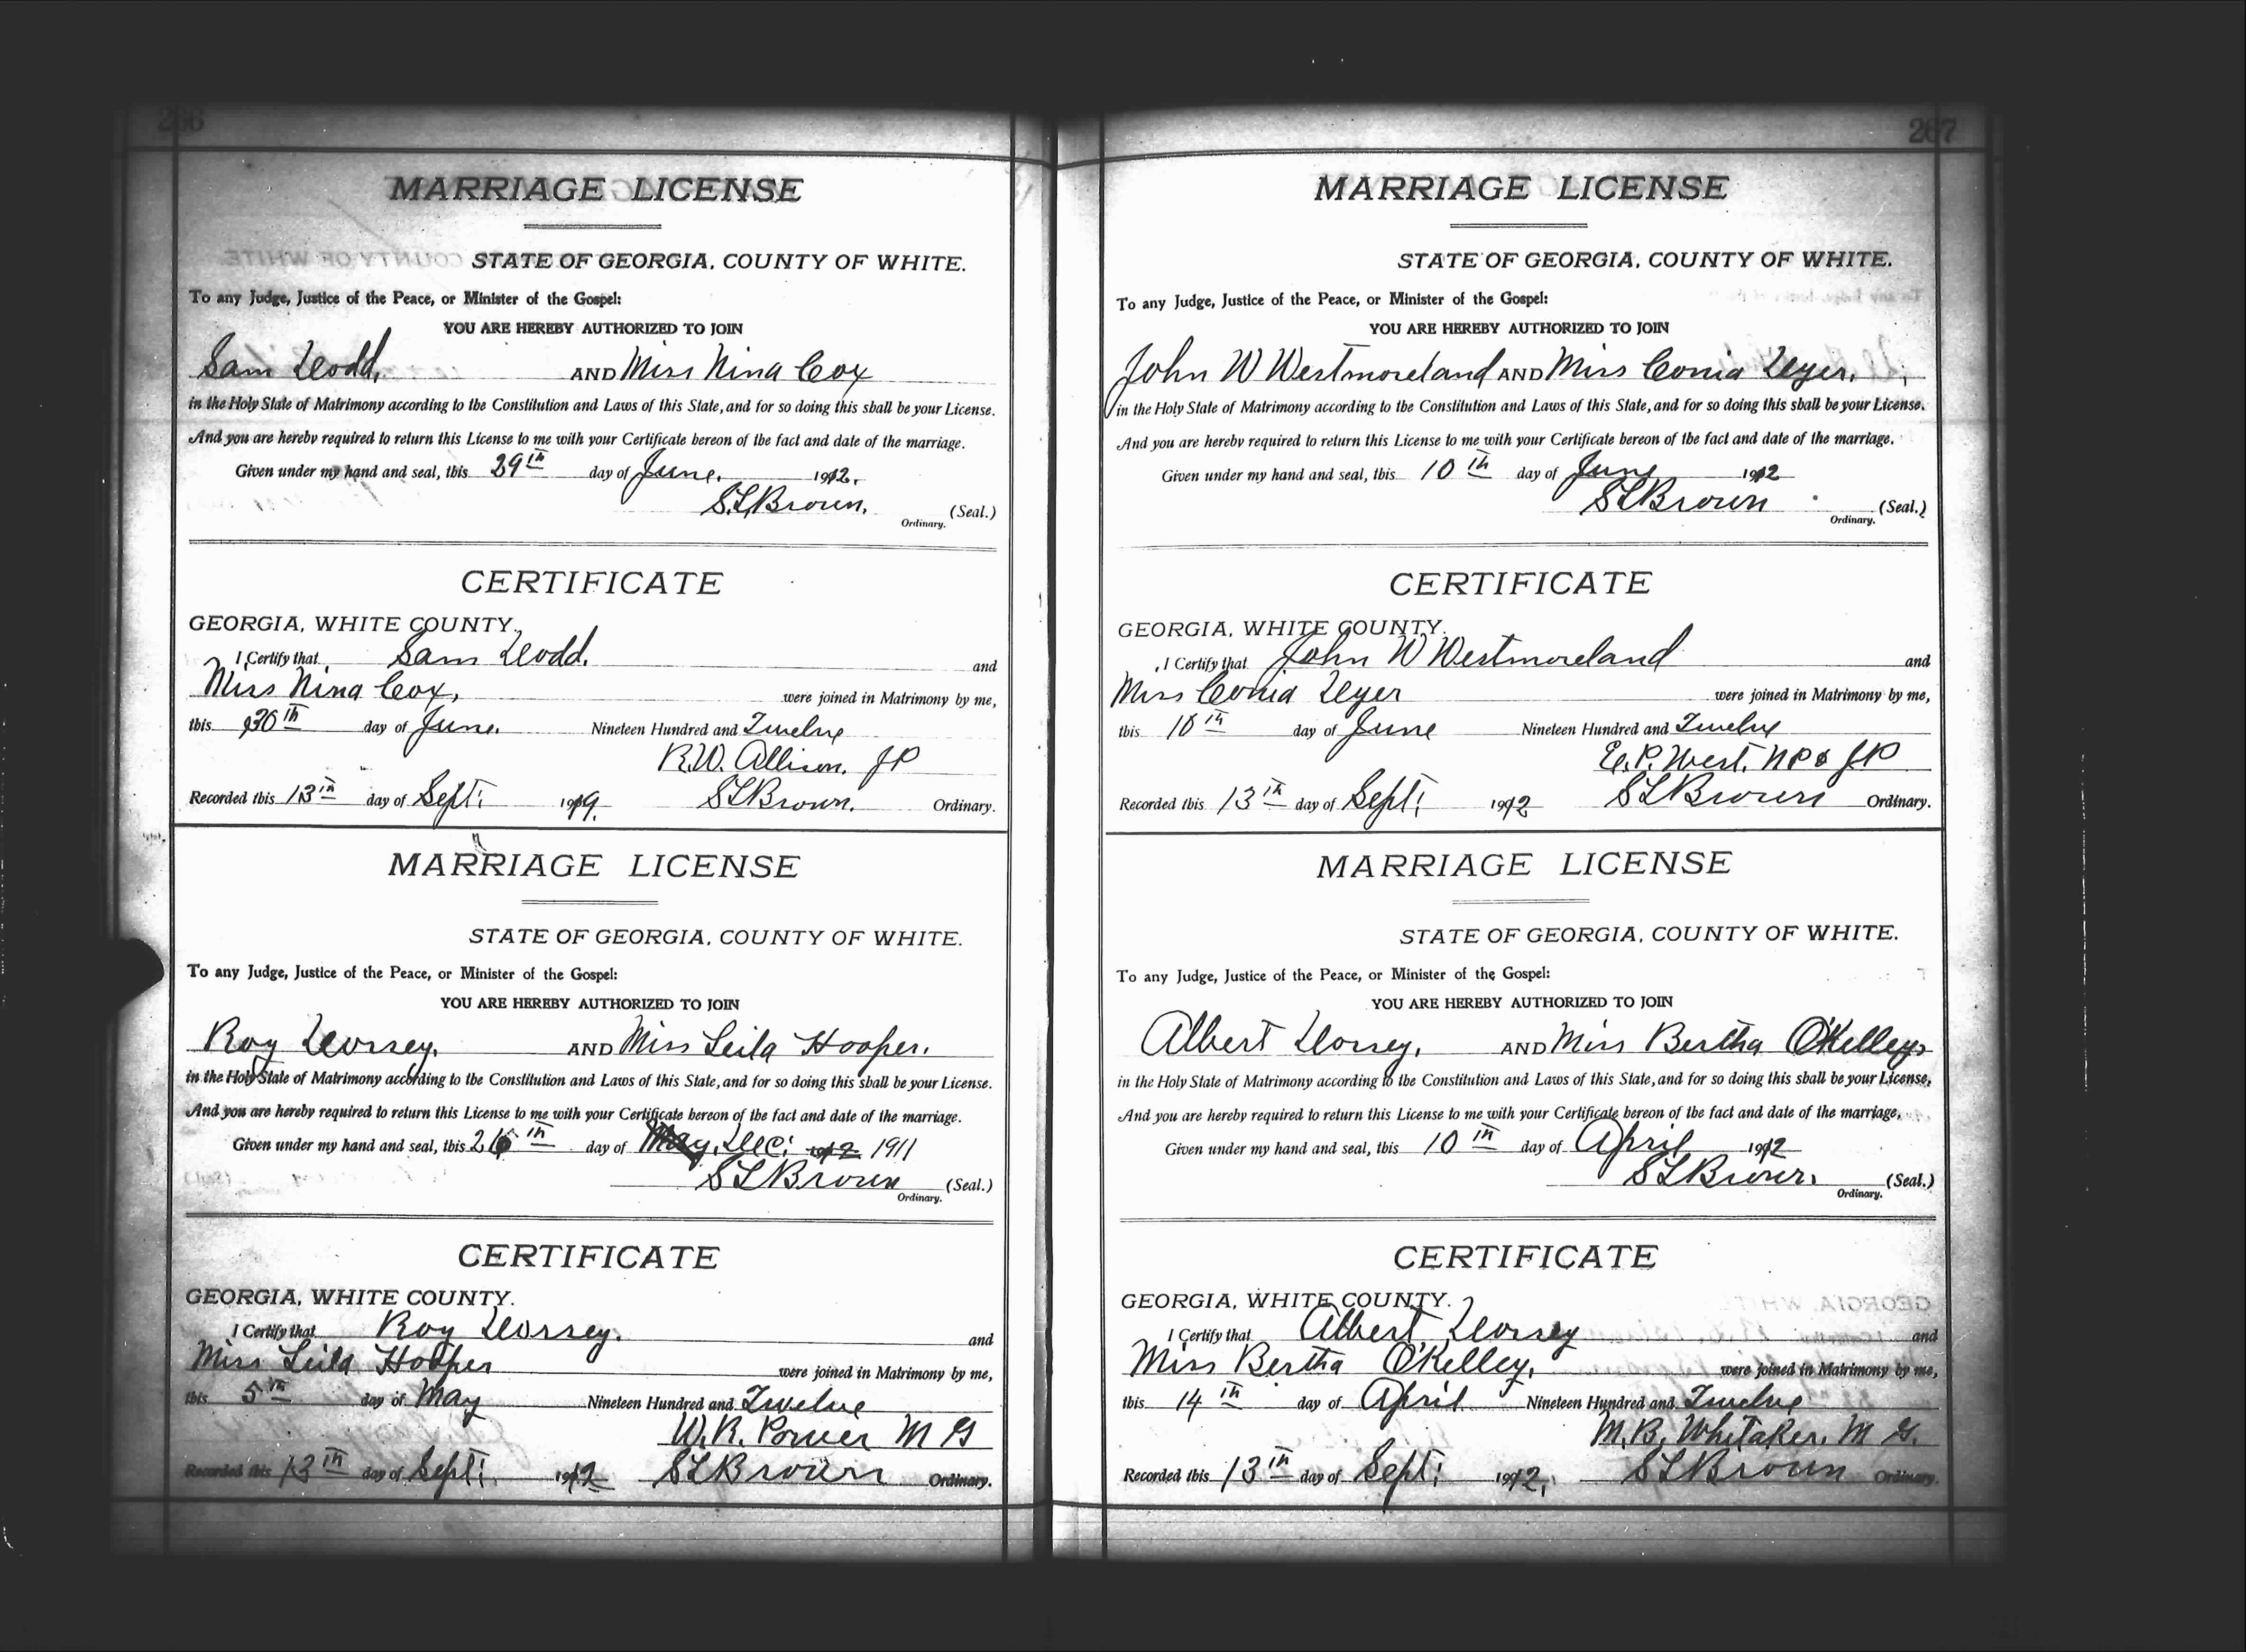 266
MARRIAGE LICENSE
STATE OF GEORGIA, COUNTY OF WHITE.
To any Judge, Justice of the Peace, or Minister of the Gospel:
YOU ARE HEREBY AUTHORIZED TO JOIN
Sam Dodd, AND Miss Nina Cox
in the Holy State of Matrimony according to the Constitution and Laws of this State, and for so doing this shall be your License.
And you are hereby required to return this License to me with your Certificate hereon of the fact and date of the marriage.
Given under my hand and seal, this 29th day of June. 1912.
S.L. Brown. (Seal.)
Ordinary.
CERTIFICATE
GEORGIA, WHITE COUNTY.
I Certify that Sam Dodd. and
Miss Nina Cox, were joined in Matrimony by me,
this 30th day of June. Nineteen Hundred and Twelve
R.W. Allison. JP
Recorded this 13th day of Sept: 19 S L Brown. Ordinary.
MARRIAGE LICENSE
STATE OF GEORGIA, COUNTY OF WHITE.
To any Judge, Justice of the Peace, or Minister of the Gospel:
YOU ARE HEREBY AUTHORIZED TO JOIN
Roy Dorsey. AND Miss Leila Hooper.
in the Holy State of Matrimony according to the Constitution and Laws of this State, and for so doing this shall be your License.
And you are hereby required to return this License to me with your Certificate hereon of the fact and date of the marriage.
Given under my hand and seal, this day of May, Dec: 1912 1911
S L Brown (Seal.)
Ordinary.
CERTIFICATE
GEORGIA, WHITE COUNTY.
I Certify that Roy Dorsey. and
Miss Leila Hooper were joined in Matrimony by me,
this 5th day of May Nineteen Hundred and Twelve
W.R. Power M G
Recorded this 13th day of Sept: 1912 S L Brown Ordinary.
267
MARRIAGE LICENSE
STATE OF GEORGIA, COUNTY OF WHITE.
To any Judge, Justice of the Peace, or Minister of the Gospel:
YOU ARE HEREBY AUTHORIZED TO JOIN
John W Westmoreland AND Miss Conia Dyer.
in the Holy State of Matrimony according to the Constitution and Laws of this State, and for so doing this shall be your License.
And you are hereby required to return this License to me with your Certificate hereon of the fact and date of the marriage.
Given under my hand and seal, this 10th day of June 1912
S L Brown (Seal.)
Ordinary.
CERTIFICATE
GEORGIA, WHITE COUNTY.
I Certify that John W Westmoreland and
Miss Conia Dyer were joined in Matrimony by me,
this 10th day of June Nineteen Hundred and Twelve
E.P. West. NP & JP
Recorded this 13th day of Sept: 1912 S L Brown Ordinary.
MARRIAGE LICENSE
STATE OF GEORGIA, COUNTY OF WHITE.
To any Judge, Justice of the Peace, or Minister of the Gospel:
YOU ARE HEREBY AUTHORIZED TO JOIN
Albert Dorsey. AND Miss Bertha O'Kelley,
in the Holy State of Matrimony according to the Constitution and Laws of this State, and for so doing this shall be your License.
And you are hereby required to return this License to me with your Certificate hereon of the fact and date of the marriage.
Given under my hand and seal, this 10th day of April 1912
S L Brown. (Seal.)
Ordinary.
CERTIFICATE
GEORGIA, WHITE COUNTY.
I Certify that Albert Dorsey and
Miss Bertha O'Kelley, were joined in Matrimony by me,
this 14th day of April Nineteen Hundred and Twelve
M.B. Whitaker. M G.
Recorded this 13th day of Sept: 1912. S L Brown Ordinary.